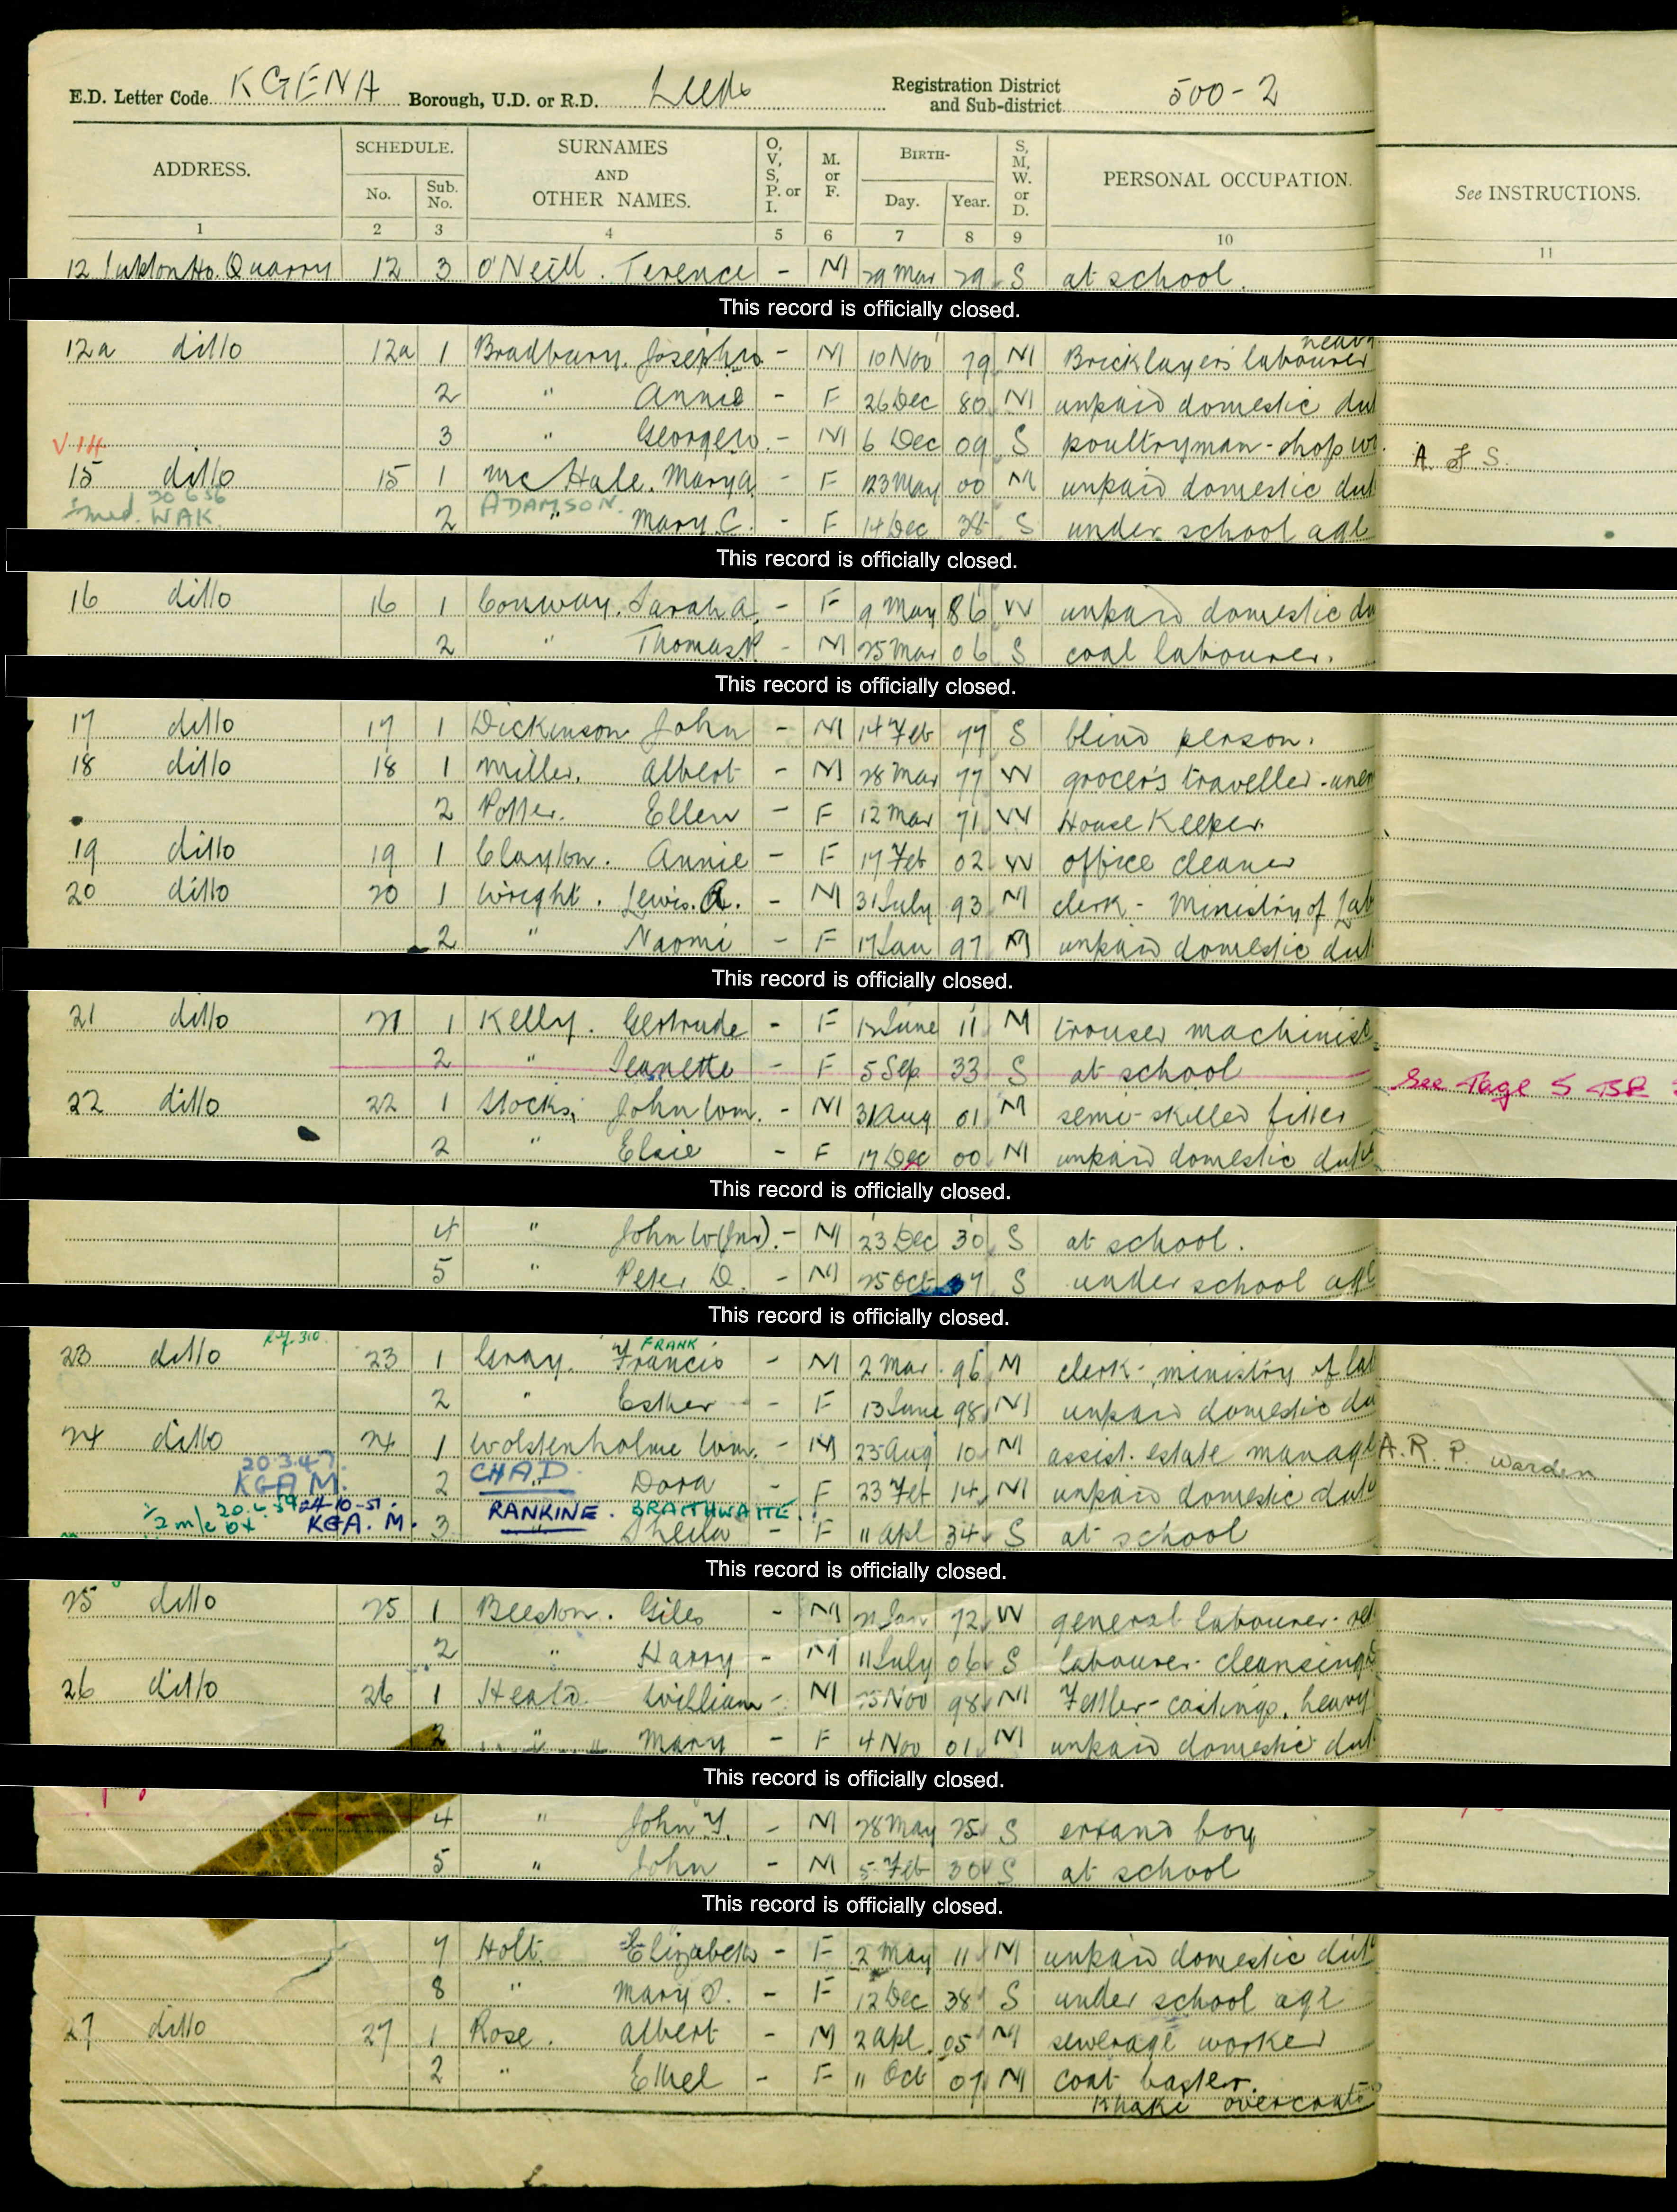 E.D. Letter Code KGENA Borough, U.D. or R.D. Leeds Registration District and Sub-district 500-2
ADDRESS. SCHEDULE. No. Sub. No. SURNAMES AND OTHER NAMES. O, V, S, P. or I. M. or F. BIRTH- Day. Year. S, M, W. or D. PERSONAL OCCUPATION. See INSTRUCTIONS.
1 2 3 4 5 6 7 8 9 10 11
12 Ho. Quarry 12 3 O'Neill. Terence - M 29 Mar 29 S at school.
This record is officially closed.
heavy
12a ditto 12a 1 Bradbury. Joseph W - M 10 Nov 79 M Bricklayers labourer
2 " Annie - F 26 Dec 80 M unpaid domestic dut
3 " George W. - M 6 Dec 09 S poultryman - shop wo. A F S.
V.14
15 ditto 15 1 McHale. Mary A - F 23 May 00 M unpaid domestic dut
20 6 56 ADAMSON.
WAK 2 " Mary. C. - F 14 Dec 38 S under school age
This record is officially closed.
16 ditto 16 1 Conway. Sarah A. - F 9 May 86 W unpaid domestic du
2 " Thomas P - M 25 Mar 06 S coal labourer.
This record is officially closed.
17 ditto 17 1 Dickinson John - M 14 Feb 77 S blind person.
18 ditto 18 1 Miller. Albert - M 28 Mar 77 W grocer's traveller - unem
2 Potter. Ellen - F 12 Mar 71 W House Keeper.
19 ditto 19 1 Clayton. Annie - F 17 Feb 02 W office cleaner
20 ditto 20 1 Wright. Lewis. A. - M 31 July 93 M clerk - Ministry of Lab
2 " Naomi - F 17 Jan 97 M unpaid domestic dut
This record is officially closed.
21 ditto 21 1 Kelly. Gertrude - F June 11 M trouser machinist
2 " Jeanette - F 5 Sep 33 S at school See Page 5
22 ditto 22 1 Stocks. John Wm. - M 31 Aug 01 M semi-skilled fitter
2 " Elsie - F 17 Dec 00 M unpaid domestic dutie
This record is officially closed.
4 " John W (Jnr). - M 23 Dec 30 S at school.
5 " Peter D. - M 25 Oct 37 S under school age
This record is officially closed.
Ref. 310 FRANK
23 ditto 23 1 Gray. Francis - M 2 Mar. 96 M clerk - ministry of lab
2 " Esther - F 13 June 98 M unpaid domestic du
24 ditto 24 1 Wolstenholme Wm. - M 23 Aug 10 M assist. estate manage A.R.P. Warden
20.3.47.
KGA M. 2 CHAD. Dora - F 23 Feb 14 M unpaid domestic dut
24-10-51. RANKINE. BRAITHWAITE.
KGA. M. 3 " Sheila - F 11 Apl 34 S at school
This record is officially closed.
25 ditto 25 1 Beeston. Giles - M 21 Jan 72 W general labourer - ret
2 " Harry - M 11 July 06 S labourer - cleansing
26 ditto 26 1 Heald. William - M 25 Nov 98 M Fettler - castings. heavy
2 " Mary - F 4 Nov 01 M unpaid domestic dut
This record is officially closed.
4 " John Y. - M 28 May 25 S errand boy
5 " John - M 5 Feb 30 S at school
This record is officially closed.
7 Holt. Elizabeth - F 2 May 11 M unpaid domestic dut
8 " Mary P. - F 12 Dec 38 S under school age
27 ditto 27 1 Rose. Albert - M 2 Apl. 05 M sewerage worker
2 " Ethel - F 11 Oct 07 M coat baster.
Khaki overcoats